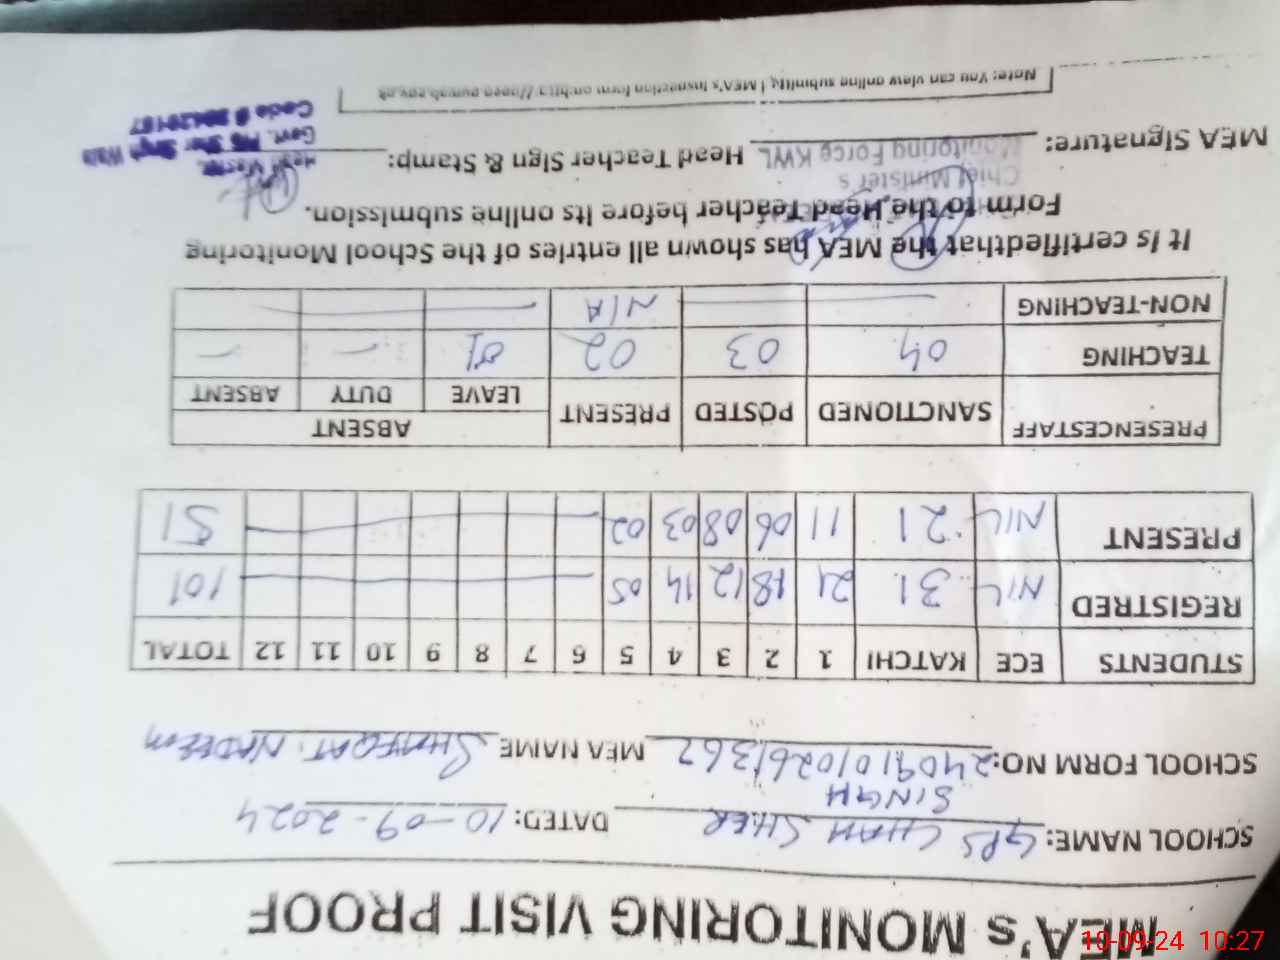 MEA's MONITORING VISIT PROOF
SCHOOL NAME: GPS CHAH SHER SINGH DATED: 10-09-2024
SCHOOL FORM NO: 24091010261362 MEA NAME SHAFQAT NADEEM
STUDENTS ECE KATCHI 1 2 3 4 5 6 7 8 9 10 11 12 TOTAL
REGISTRED NIL 31 21 18 12 14 05 101
PRESENT NIL 21 11 06 08 03 02 51
PRESENCESTAFF SANCTIONED POSTED PRESENT ABSENT
LEAVE DUTY ABSENT
TEACHING 04 03 02 01 - -
NON-TEACHING N/A
It is certifiedthat the MEA has shown all entries of the School Monitoring
Form to the Head Teacher before its online submission.
Chief Minister's
Monitoring Force KWL
MEA Signature: Head Teacher Sign & Stamp:
Head Master
Govt. P/S Sher Singh Wala
Code #
Note: You can view online submitted MEA's inspection form on
10-09-24 10:27